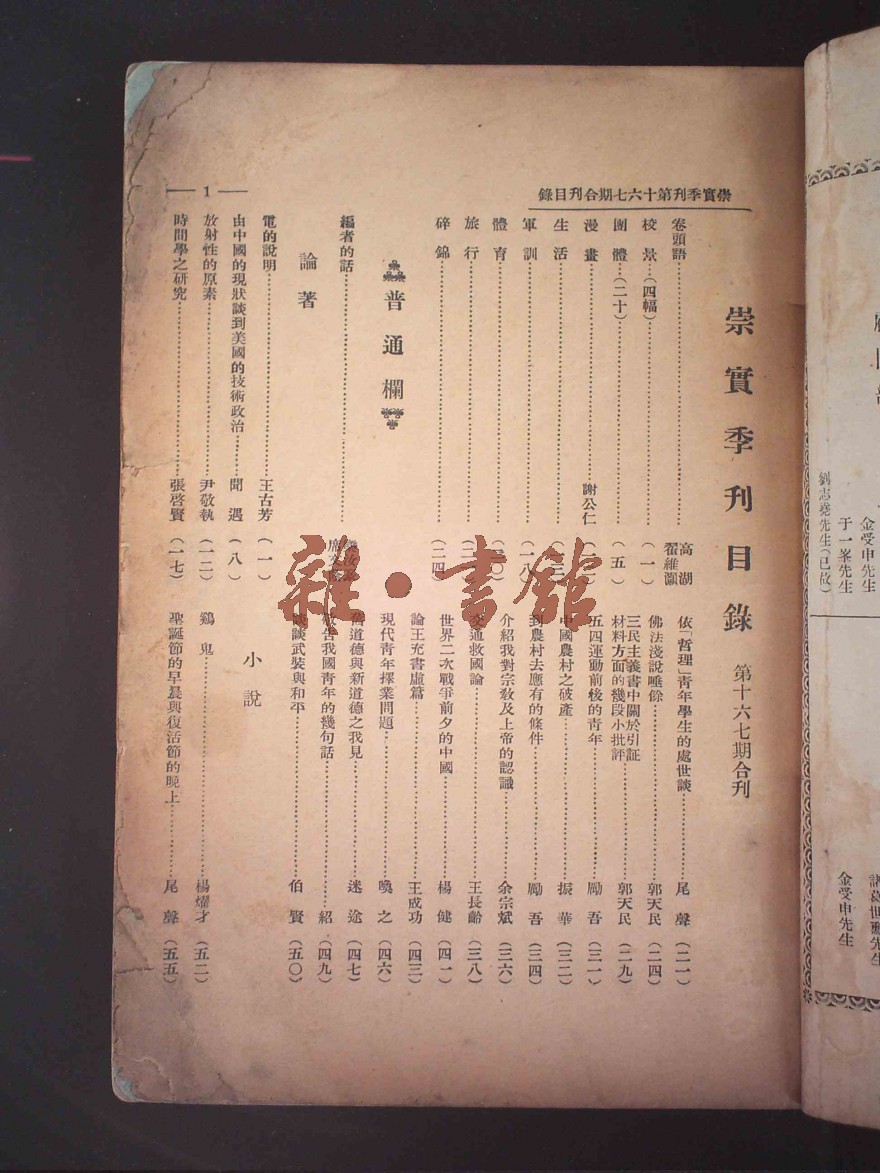 崇實季刊第十六七期合刊目錄
— 1 —
崇實季刊目錄 第十六七期合刊
卷頭語 高湖 翟維灝
校景(四幅) (一)
團體(二十) (五)
漫畫 謝公仁
生活
軍訓 (一八)
體育
旅行
碎錦 (三四)
普通欄
編者的話
論著
電的說明 王古芳 (一)
由中國的現狀談到美國的技術政治 聞遇 (八)
放射性的原素 尹敬執 (一二)
時間學之研究 張啓賢 (一七)
依「哲理」靑年學生的處世談 尾聲 (二一)
佛法淺說唾餘 郭天民 (二四)
三民主義書中關於引証
材料方面的幾段小批評 郭天民 (二九)
五四運動前後的靑年 勵吾 (三一)
中國農村之破產 振華 (三二)
到農村去應有的條件 勵吾 (三四)
介紹我對宗敎及上帝的認識 余宗斌 (三六)
交通救國論 王長齡 (三八)
世界二次戰爭前夕的中國 楊健 (四一)
論王充書虛篇 王成功 (四三)
現代靑年擇業問題 喚之 (四六)
舊道德與新道德之我見 迷途 (四七)
敬告我國靑年的幾句話 紹 (四九)
談談武裝與和平 伯賢 (五〇)
小說
鷄鬼 楊燿才 (五二)
聖誕節的早晨與復活節的晚上 尾聲 (五五)
雜·書館
金受申先生
于一峯先生
劉志堯先生(已故)
金受申先生